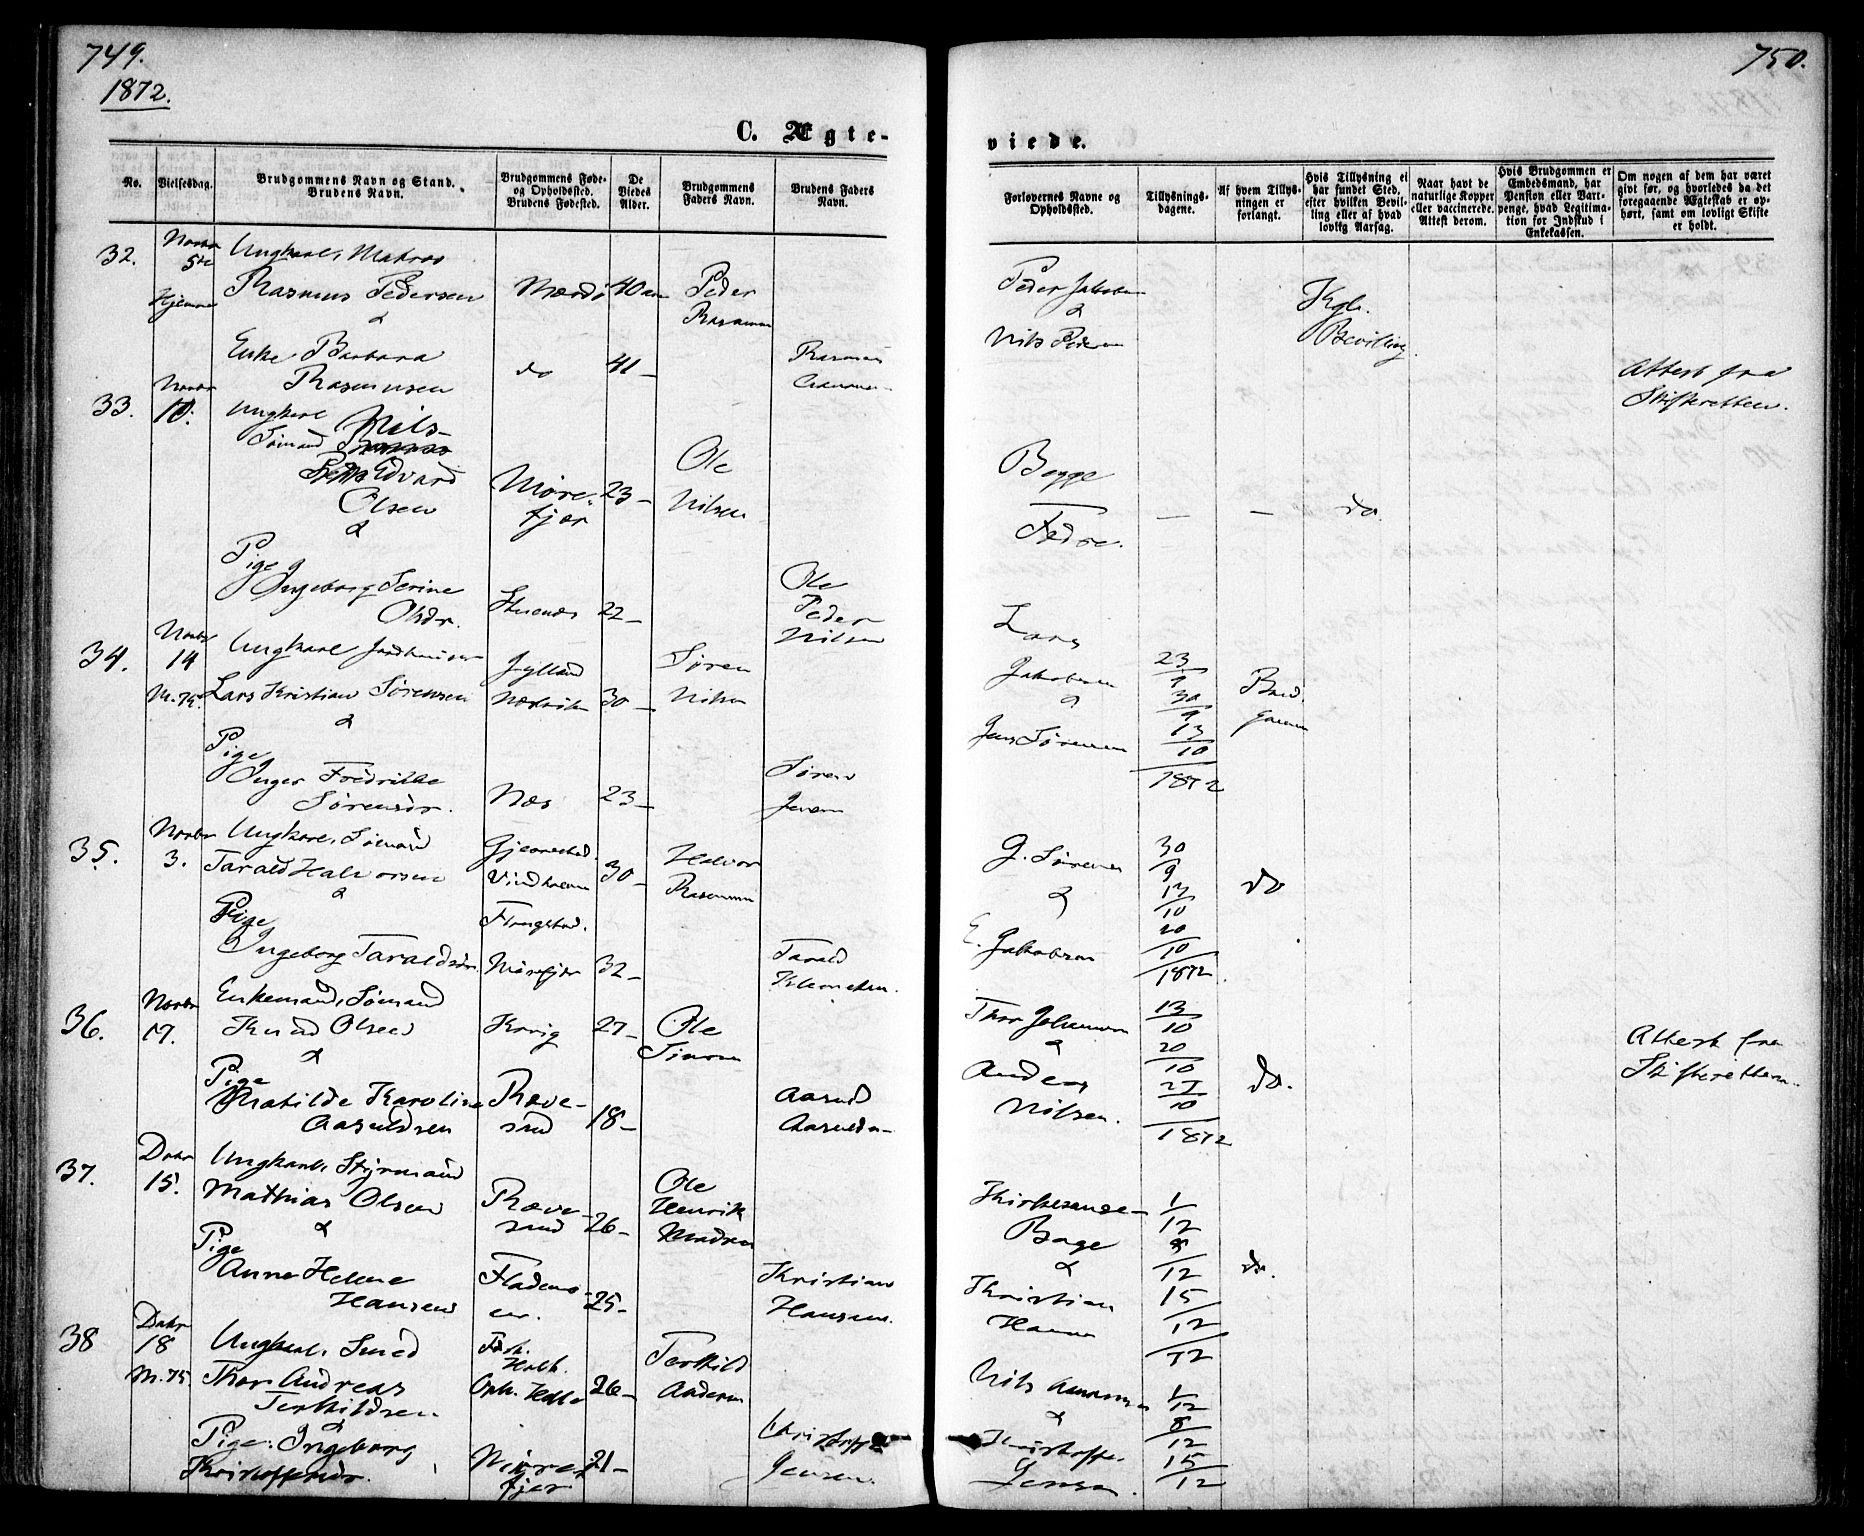 749.
1872.
C. Ægte-
No.
Vielsesdag.
Brudgommens Navn og Stand.
Brudens Navn.
Brudgommens Føde-
og Opholdssted.
Brudens Fødested.
De
Viedes
Alder.
Brudgommens
Faders Navn.
Brudens Faders
Navn.
32.
Novbr
5te
Hjemme
Ungkarl, Matros
Rasmus Pedersen
&
Mærdø
40 aar
Peder
Rasmusen
Enke Barbara
Rasmussen
do
41 -
Rasmus
33.
Novbr
10.
Ungkarl
Sømand Nils
Edvard
Olsen
&
Møre-
fjær
23 -
Ole
Nilsen
Pige
Ingeborg Serine
Olsdr.
Stuenes
22 -
Ole
Peder
Nilsen
34.
Novbr
14
M. 75.
Ungkarl Jordbruger
Lars Kristian Sørensen
&
Jylland
Nedevik
30 -
Søren
Nilsen
Pige
Inger Fredrikke
Sørensdr.
Næs
23 -
Søren
Jensen
35.
Novbr
3.
Ungkarl, Sømand
Tarald Halvorsen
&
Gjerrestad.
Vindholmen
30 -
Halvor
Rasmusen
Pige
Ingeborg Taraldsdr.
Flangstad.
Mørefjær
32 -
Tarald
Klemetsen.
36.
Novbr
17.
Enkemand, Sømand
Knud Olsen
&
Korvig
27 -
Ole
Simonsen
Pige
Mathilde Karoline
Aasuldsen
Ræve-
sand
18 -
Aasuld
Aasuldsen
37.
Decbr
15.
Ungkarl, Styrmand
Mathias Olsen
&
Ræve-
sand
26 -
Ole
Henrik
Madsen
Pige
Anne Helene
Hansen
Fladems-
en.
25 -
Kristian
Hansen.
38
Decbr
18
M. 75.
Ungkarl, Smed
Thor Andreas
Terkildsen
&
Holt.
Oph. Holt
26 -
Terkild
Andersen
Pige: Ingeborg
Kristoffersdr.
Møre-
fjær
21 -
Christoffer
Jensen.
750.
viede.
Forlovernes Navne og
Opholdssted.
Tillysnings-
dagene.
Af hvem Tillys-
ningen er
forlangt.
Hvis Tillysning ei
har fundet Sted,
efter hvilken Bevil-
ling eller af hvad
lovlig Aarsag.
Naar havt de
naturlige Kopper
eller vaccinerede.
Attest derom.
Hvis Brudgommen er
Embedsmand, har
Pension eller Vart-
penge, hvad Legitima-
tion for Indskud i
Enkekassen.
Om nogen af dem har været
givt før, og hvorledes da det
foregaaende Ægteskab er op-
hørt, samt om lovligt Skifte
er holdt.
Peder Jakobsen
&
Nils Pedersen
Kgl.
Bevilling.
Attest fra
Skifteretten.
Begge
Fædre.
—
—
do.
Lars
Jakobsen
&
Jens Sørensen
23/9
30/9
13/10
1872
Brud
gommen
G. Sørensen
&
E. Jakobsen
30/9
13/10
20/10
1872
do
Thor Johnsen
&
Anders
Nilsen.
13/10
20/10
27/10
1872
do.
Attest fra
Skifteretten.
Kirkesanger
Bage
&
Kristian
Hansen
1/12
8/12
15/12
72
do.
Nils Aanonsen
&
Kristoffer
Jensen.
1/12
8/12
15/12